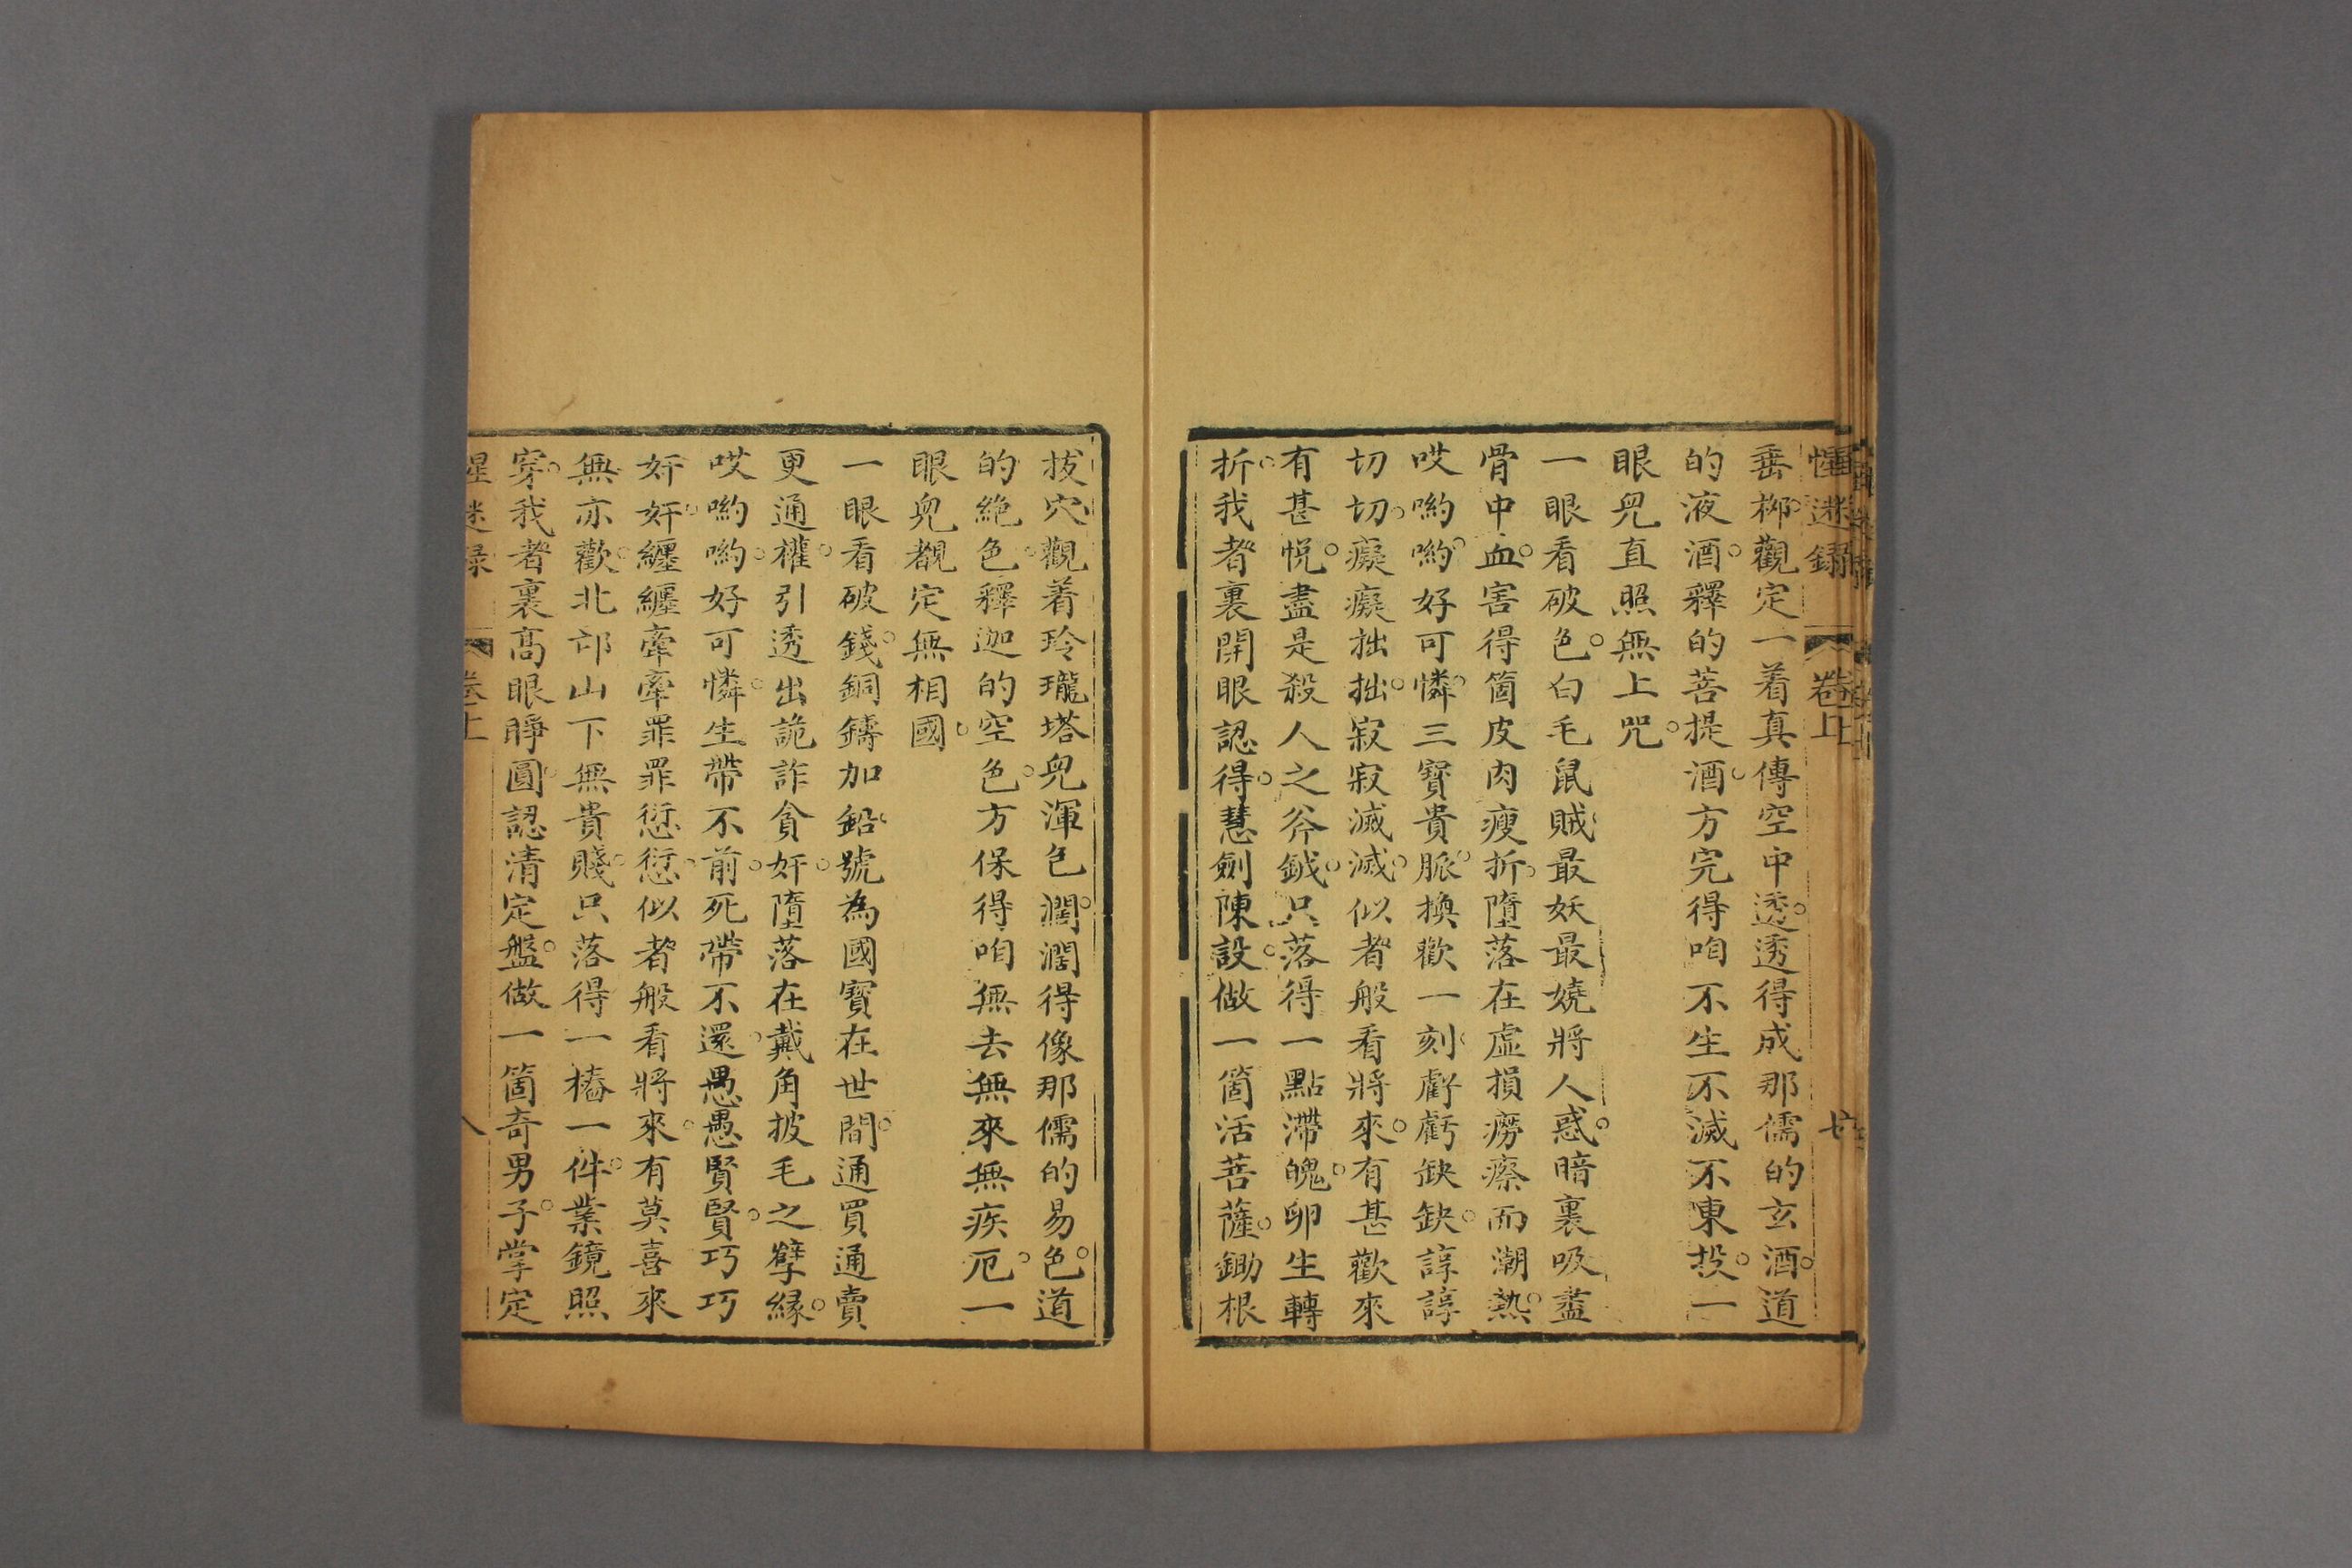 惺迷錄 卷上 七
垂栁觀定一着真傳空中透透得成那儒的玄酒道
的液酒釋的菩提酒方完得咱不生不滅不東投一
眼皃直照無上咒
一眼看破色白毛鼠賊最妖最嬈將人惑暗裏吸盡
骨中血害得箇皮肉瘦折墮落在虛損癆瘵而潮熱
哎喲喲好可憐三寶貴脈換歡一刻虧虧缺缺諄諄
切切癡癡拙拙寂寂滅滅似者般看將來有甚歡來
有甚悦盡是殺人之斧鉞只落得一點滯魄卵生轉
折我者裏開眼認得慧劍陳設做一箇活菩薩鋤根
拔穴觀着玲瓏塔皃渾色濶濶得像那儒的易色道
的絶色釋迦的空色方保得咱無去無來無疾厄一
眼皃覩定無相國
一眼看破錢銅鑄加鉛號為國寶在世間通買通賣
更通權引透出詭詐貪奸墮落在戴角披毛之孽緣
哎喲喲好可憐生帶不前死帶不還愚愚賢賢巧巧
奸奸纏纏牽牽罪罪愆愆似者般看將來有莫喜來
無亦歡北邙山下無貴賤只落得一樁一件業鏡照
穿我者裏髙眼睜圓認清定盤做一箇奇男子掌定
惺迷録 卷上 八